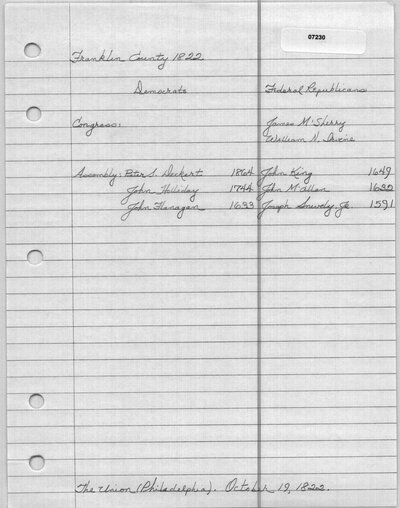 07230
Franklin County 1822
Democrats Federal Republicans
Congress: James M'Sherry
William N. Irvine
Assembly: Peter S. Deckert 1864 John King 1649
John Holliday 1744 John M'Allen
John Flanagan 1633 Joseph Snively Jr. 1591
The Union (Philadelphia). October 19, 1822.